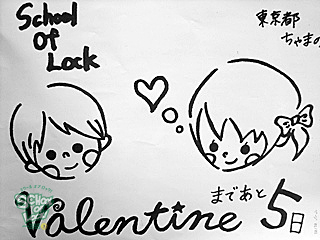 School
Of
Lock
東京都
ちゃまの
まであと
5日
Valentine